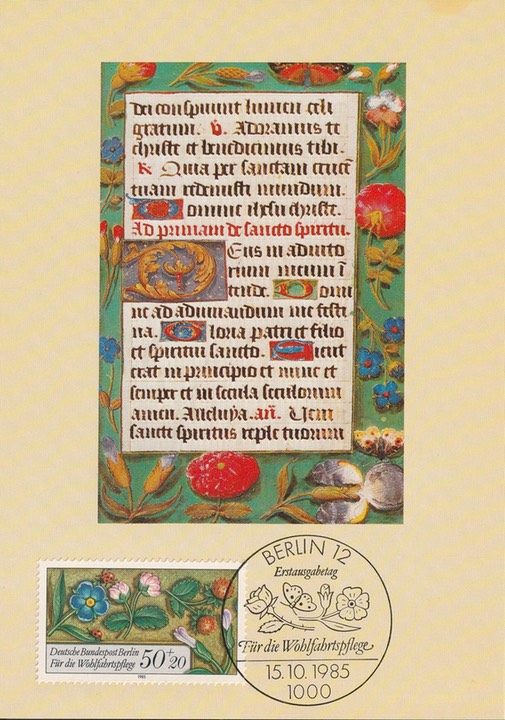 dei conspiciunt lumen celi
gratum. v. Adoramus te
christe et benedicimus tibi.
R Quia per sanctam crucem
tuam redemisti mundum.
Domine ihesu christe.
Ad primam de sancto spiritu.
Deus in adiuto
rium meum i
tende. Domi
ne ad adiuuandum me festi
na. Gloria patri et filio
et spiritui sancto. Sicut
erat in principio et nunc et
semper et in secula seculorum
amen. Alleluya. an. Veni
sancte spiritus reple tuorum
BERLIN 12
Erstausgabetag
Für die Wohlfahrtspflege
15.10.1985
1000
Deutsche Bundespost Berlin
Für die Wohlfahrtspflege
50+20
1985